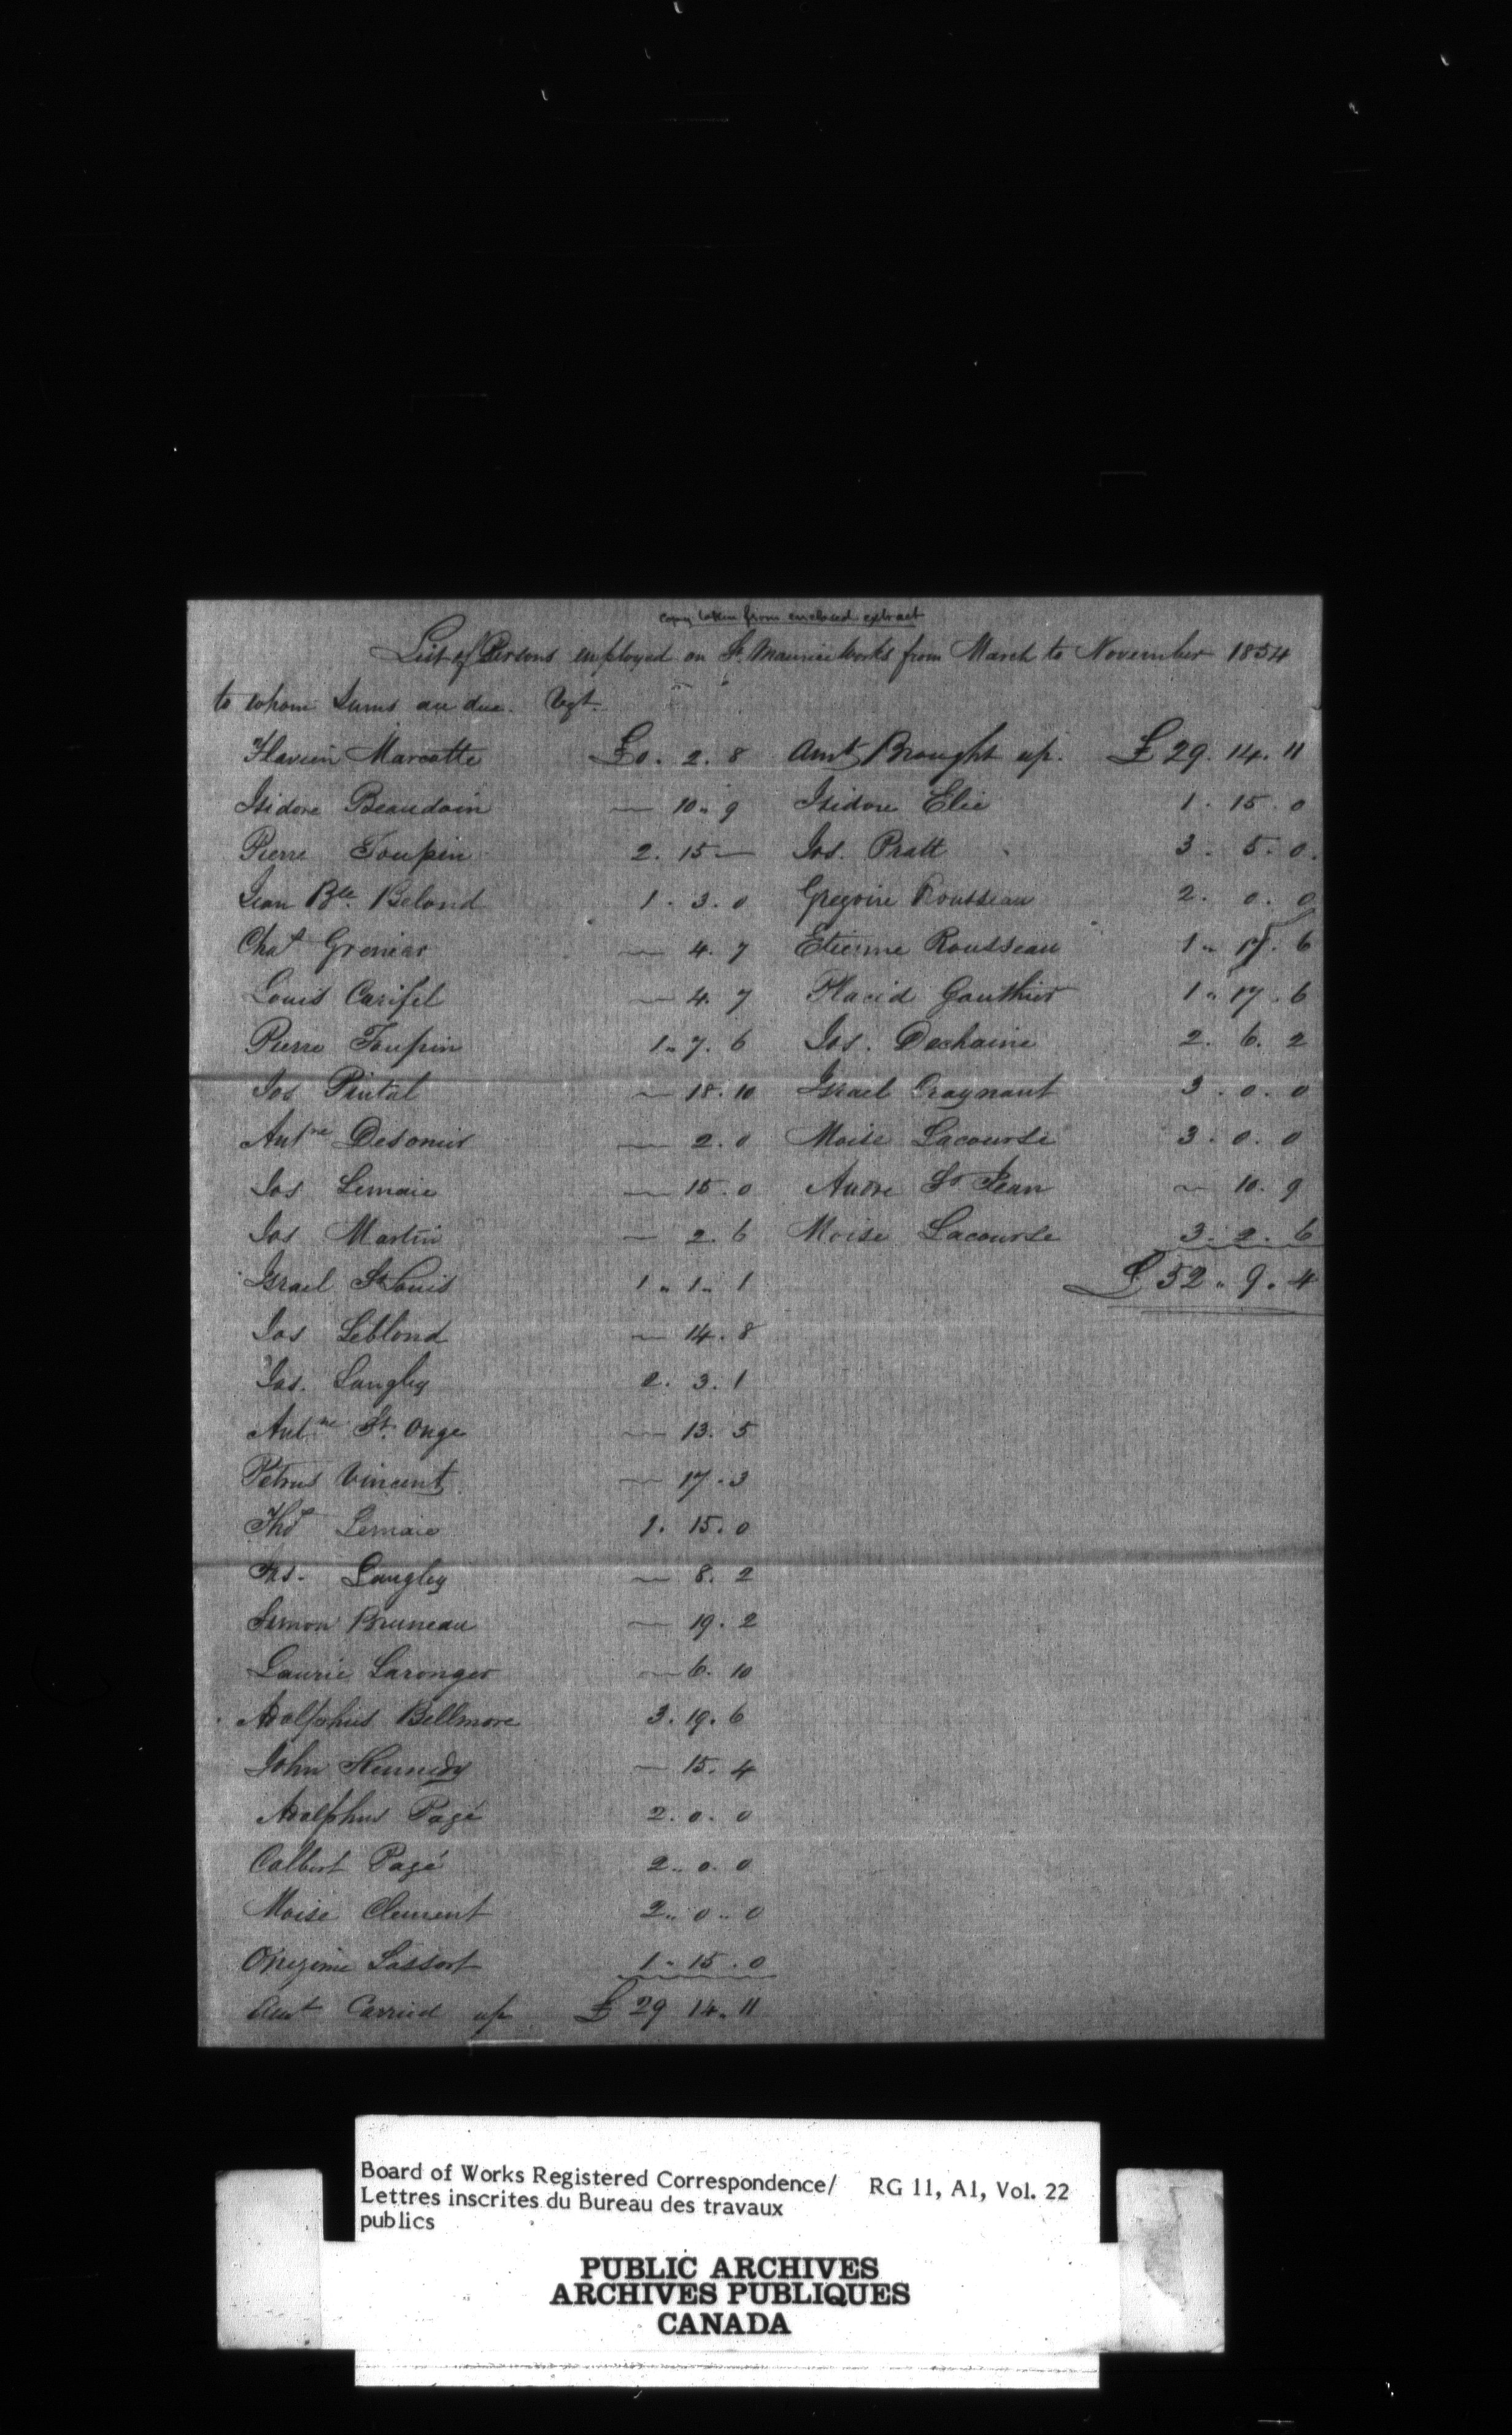 copy taken from enclosed extract
List of Persons employed on St. Maurice Works from March to November 1854
to whom Sums are due. Vizt.
Flavien Marcotte £0. 2. 8
Isidore Beaudoin — 10.. 9
Pierre Toupin 2. 15 —
Jean Bte. Beland 1. 3. 0
Chas Grenier — 4. 7
Louis Carifel — 4. 7
Pierre Toupin 1.. 7. 6
Jos Pintal — 18. 10
Antne Desonier — 2. 0
Jos Lemaie — 15. 0
Jos Martin — 2. 6
Israel St Louis 1.. 1.. 1
Jos Leblond — 14. 8
Jos. Langley 2. 3. 1
Antne St. Onge — 13. 5
Petrus Vincent — 17. 3
Thos Lemaie 1. 15. 0
Frs. Langley — 8. 2
Simon Bruneau — 19. 2
Laurie Laronger — 6. 10
Adolphus Bellmore 3. 19. 6
John Kennedy — 15. 4
Adolphus Pagé 2. 0. 0
Calbert Pagé 2.. 0. 0
Moise Clement 2.. 0.. 0
Onezime Lassort 1. 15. 0
Amt Carried up £ 29 14.. 11
Amt Brought up. £ 29. 14. 11
Isidore Elie 1. 15. 0
Jos. Pratt 3. 5. 0.
Gregoire Rousseau 2. 0. 0
Etienne Rousseau 1.. 17. 6
Placid Gauthier 1.. 17. 6
Jos. Dechaine 2. 6. 2
Israel Cragnant 3. 0. 0
Moise Lacourse 3. 0. 0
Andre St Jean — 10. 9
Moise Lacourse 3. 2. 6
£ 52.. 9. 4
Board of Works Registered Correspondence/ RG 11, A1, Vol. 22
Lettres inscrites du Bureau des travaux
publics
PUBLIC ARCHIVES
ARCHIVES PUBLIQUES
CANADA